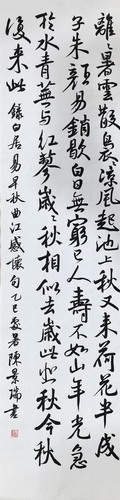 離〻暑雲散裊〻涼風起池上秋又來荷花半成
子朱顏易銷歇白日無窮已人壽不如山年光急
於水青蕪與紅蓼歲〻秋相似去歲此悲秋今秋
復來此 錄白居易早秋曲江感懷句乙巳 陳景瑞書